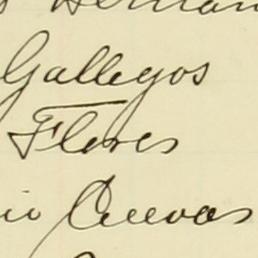 Gallegos
Flores
io Cuevas